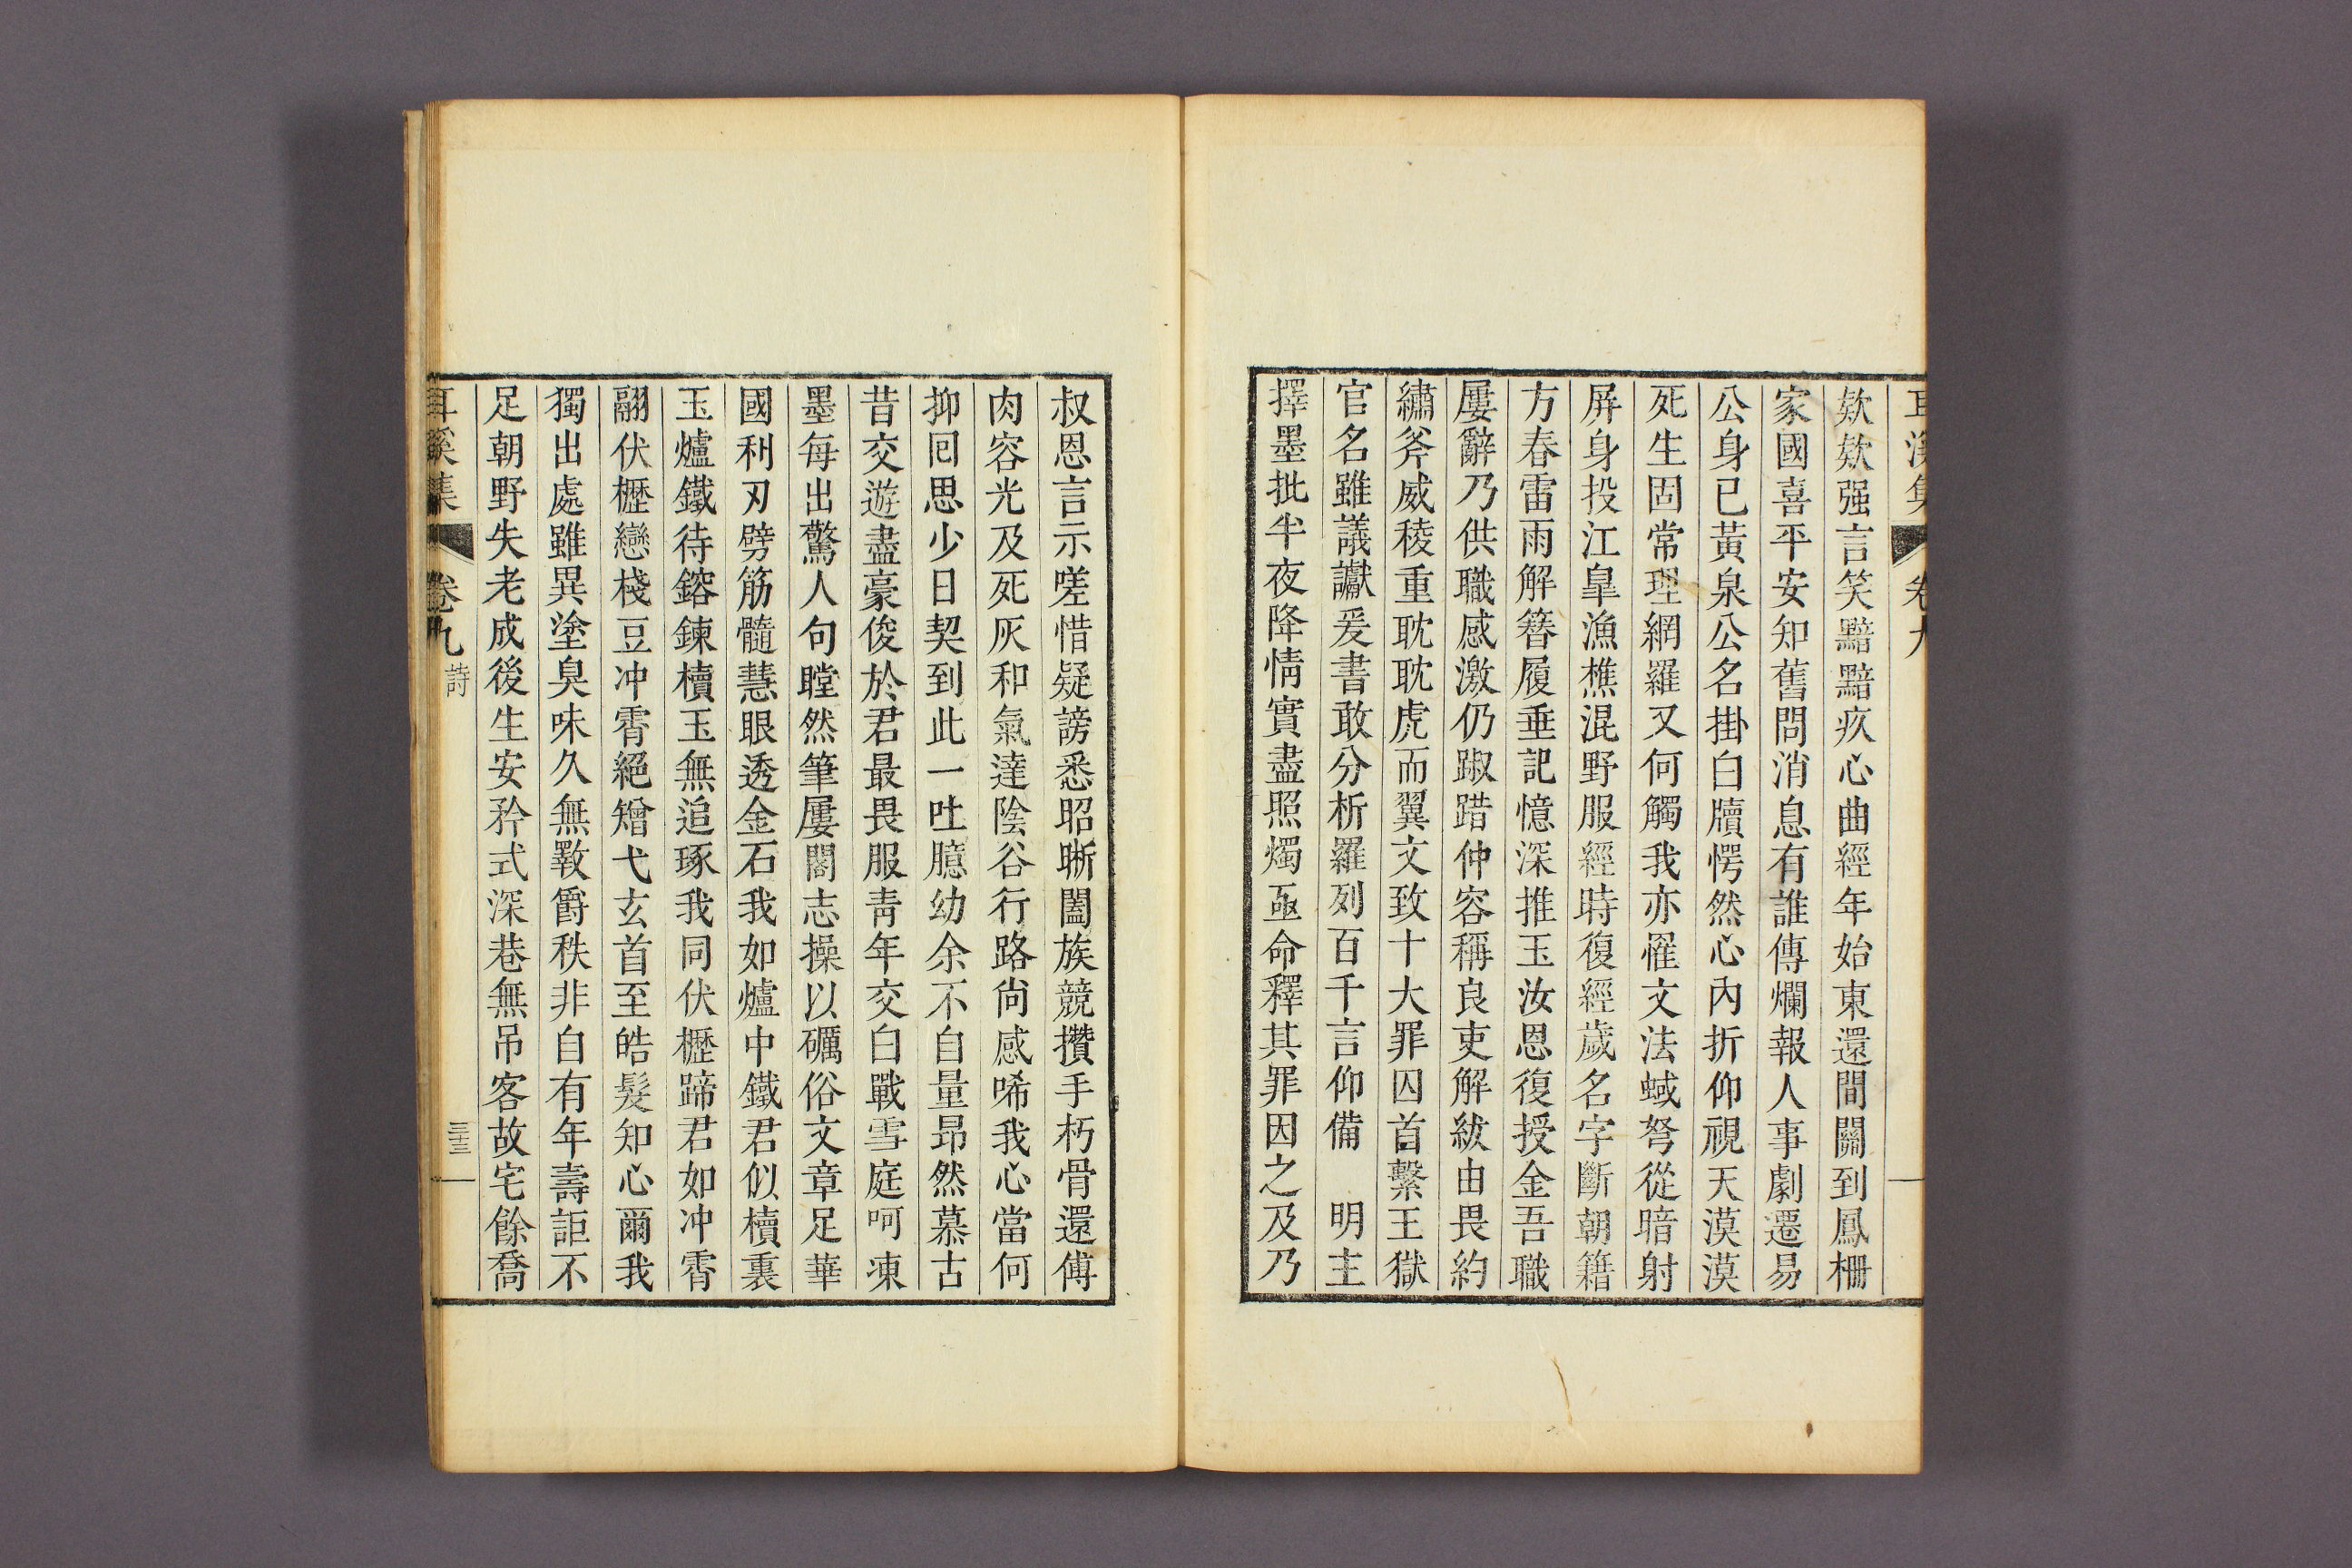 耳溪集 卷九
欬欬强言笑黯黯疚心曲經年始東還間關到鳳柵
家國喜平安知舊問消息有誰傳爛報人事劇遷易
公身已黃泉公名掛白牘愕然心內折仰視天漠漠
死生固常理網羅又何觸我亦罹文法蜮弩從暗射
屏身投江臯漁樵混野服經時復經歲名字斷朝籍
方春雷雨解簪履垂記憶深推玉汝恩復授金吾職
屢辭乃供職感激仍踧踖仲容稱良吏解紱由畏約
繡斧威稜重耽耽虎而翼文致十大罪囚首繫王獄
官名雖議讞爰書敢分析羅列百千言仰備 明主
擇墨批半夜降情實盡照燭亟命釋其罪因之及乃
叔恩言示嗟惜疑謗悉昭晣闔族競攢手朽骨還傅
肉容光及死灰和氣達陰谷行路尙感唏我心當何
抑回思少日契到此一吐臆幼余不自量昂然慕古
昔交遊盡豪俊於君最畏服靑年交白戰雪庭呵凍
墨每出驚人句瞠然筆屢閣志操以礪俗文章足華
國利刃劈筋髓慧眼透金石我如爐中鐵君似櫝裏
玉爐鐵待鎔鍊櫝玉無追琢我同伏櫪蹄君如冲霄
翮伏櫪戀棧豆冲霄絕矰弋玄首至皓髮知心爾我
獨出處雖異塗臭味久無斁爵秩非自有年壽詎不
足朝野失老成後生安矜式深巷無吊客故宅餘喬
耳溪集 卷九 詩 三十三